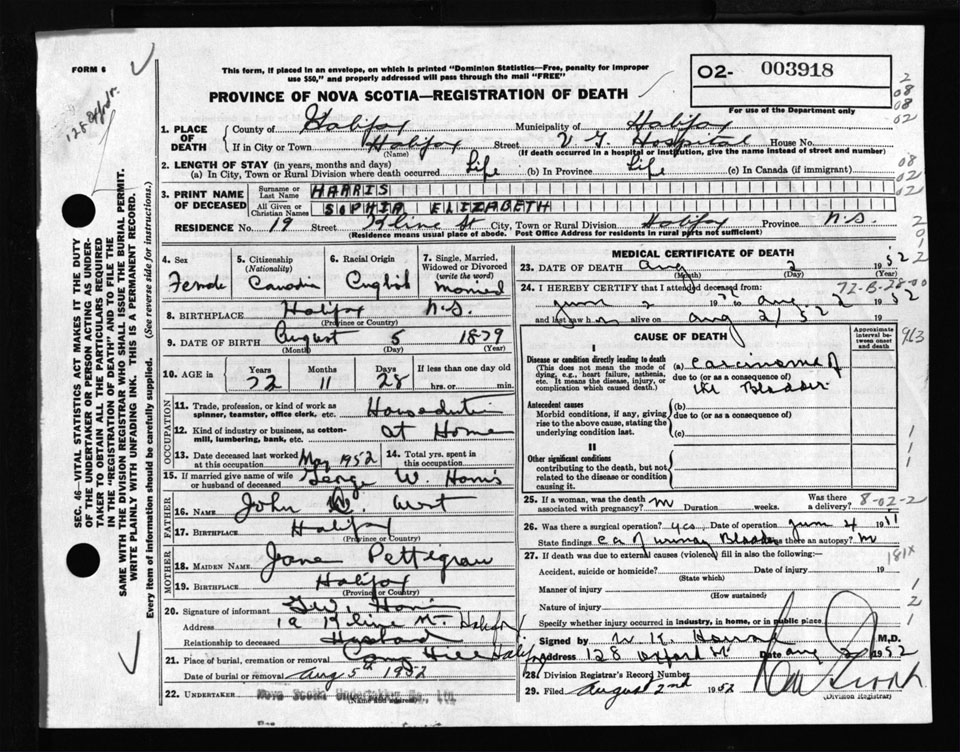 FORM 6
This form, if placed in an envelope, on which is printed "Dominion Statistics—Free, penalty for improper
use $50," and properly addressed will pass through the mail "FREE"
O2- 003918
For use of the Department only
PROVINCE OF NOVA SCOTIA—REGISTRATION OF DEATH
SEC. 46—VITAL STATISTICS ACT MAKES IT THE DUTY
OF THE UNDERTAKER OR PERSON ACTING AS UNDER-
TAKER TO OBTAIN ALL THE PARTICULARS REQUIRED
IN THE "REGISTRATION OF DEATH" AND TO FILE THE
SAME WITH THE DIVISION REGISTRAR WHO SHALL ISSUE THE BURIAL PERMIT.
WRITE PLAINLY WITH UNFADING INK. THIS IS A PERMANENT RECORD.
Every item of information should be carefully supplied. (See reverse side for instructions.)
1. PLACE OF DEATH County of Halifax Municipality of Halifax
If in City or Town Halifax Street V. G. Hospital House No.
(Name) (If death occurred in a hospital or institution, give the name instead of street and number)
2. LENGTH OF STAY (in years, months and days)
(a) In City, Town or Rural Division where death occurred Life (b) In Province Life (c) In Canada (if immigrant)
3. PRINT NAME OF DECEASED Surname or Last Name HARRIS
All Given or Christian Names SOPHIA ELIZABETH
RESIDENCE No. 19 Street Kline St City, Town or Rural Division Halifax Province N.S.
(Residence means usual place of abode. Post Office Address for residents in rural parts not sufficient)
4. Sex Female
5. Citizenship (Nationality) Canadian
6. Racial Origin English
7. Single, Married, Widowed or Divorced (write the word) Married
8. BIRTHPLACE Halifax N.S.
(Province or Country)
9. DATE OF BIRTH August 5 1879
(Month) (Day) (Year)
10. AGE in Years 72 Months 11 Days 28 If less than one day old hrs. or min.
OCCUPATION
11. Trade, profession, or kind of work as spinner, teamster, office clerk, etc. Housedutie
12. Kind of industry or business, as cotton-mill, lumbering, bank, etc. at Home
13. Date deceased last worked at this occupation May 1952 14. Total yrs. spent in this occupation
15. If married give name of wife or husband of deceased George W. Harris
FATHER
16. NAME John West
17. BIRTHPLACE Halifax
(Province or Country)
MOTHER
18. MAIDEN NAME Jane Pettigrew
19. BIRTHPLACE Halifax
(Province or Country)
20. Signature of informant G.W. Harris
Address 19 Kline St. Halifax
Relationship to deceased Husband
21. Place of burial, cremation or removal Camp Hill Halifax
Date of burial or removal Aug 5th 1952
22. UNDERTAKER Nova Scotia Undertaking Co. Ltd.
(Name and address)
MEDICAL CERTIFICATE OF DEATH
23. DATE OF DEATH Aug 2 1952
(Month) (Day) (Year)
24. I HEREBY CERTIFY that I attended deceased from: 72-B-28-00
June 2 1952 to Aug 2 1952
and last saw h alive on Aug 2/52
CAUSE OF DEATH
Approximate interval between onset and death
I
Disease or condition directly leading to death
(This does not mean the mode of dying, e.g., heart failure, asthenia, etc. It means the disease, injury, or complication which caused death.)
(a) Carcinoma of
due to (or as a consequence of)
the Bladder
Antecedent causes
Morbid conditions, if any, giving rise to the above cause, stating the underlying condition last.
(b)
due to (or as a consequence of)
(c)
II
Other significant conditions
contributing to the death, but not related to the disease or condition causing it.
25. If a woman, was the death associated with pregnancy? Duration weeks. Was there a delivery? 8-02-2
26. Was there a surgical operation? yes Date of operation June 4 19
State findings ca of urinary Bladder Was there an autopsy?
27. If death was due to external causes (violence) fill in also the following:—
181X
Accident, suicide or homicide? Date of injury 19
(State which)
Manner of injury
(How sustained)
Nature of injury
Specify whether injury occurred in industry, in home, or in public place.
Signed by M.D.
Address 128 Oxford St Date Aug 2 1952
28. Division Registrar's Record Number
29. Filed August 2nd 1952
(Division Registrar)